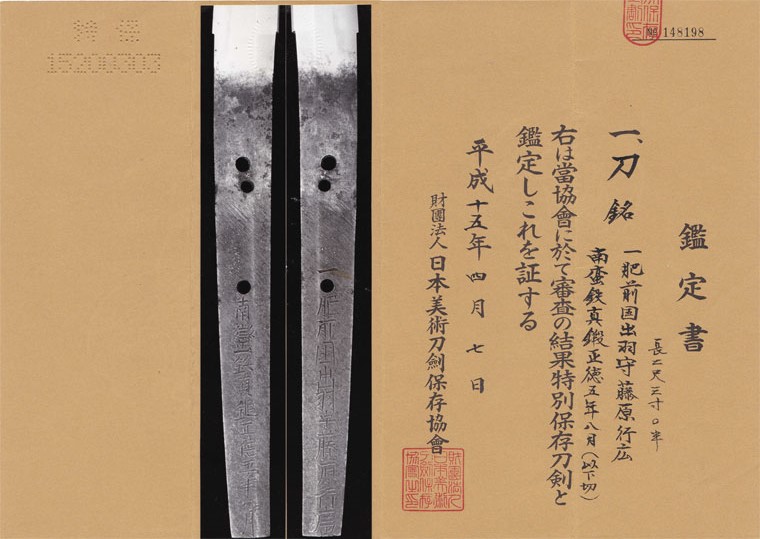 148198
鑑定書
長二尺三寸〇半
一、刀 銘 一肥前国出羽守藤原行広
南蛮鉄真鍛正徳五年八月(以下切)
右は當協會に於て審査の結果特別保存刀剣と
鑑定しこれを証する
平成十五年四月七日
財團法人日本美術刀劍保存協會
一肥前国出羽守藤原行